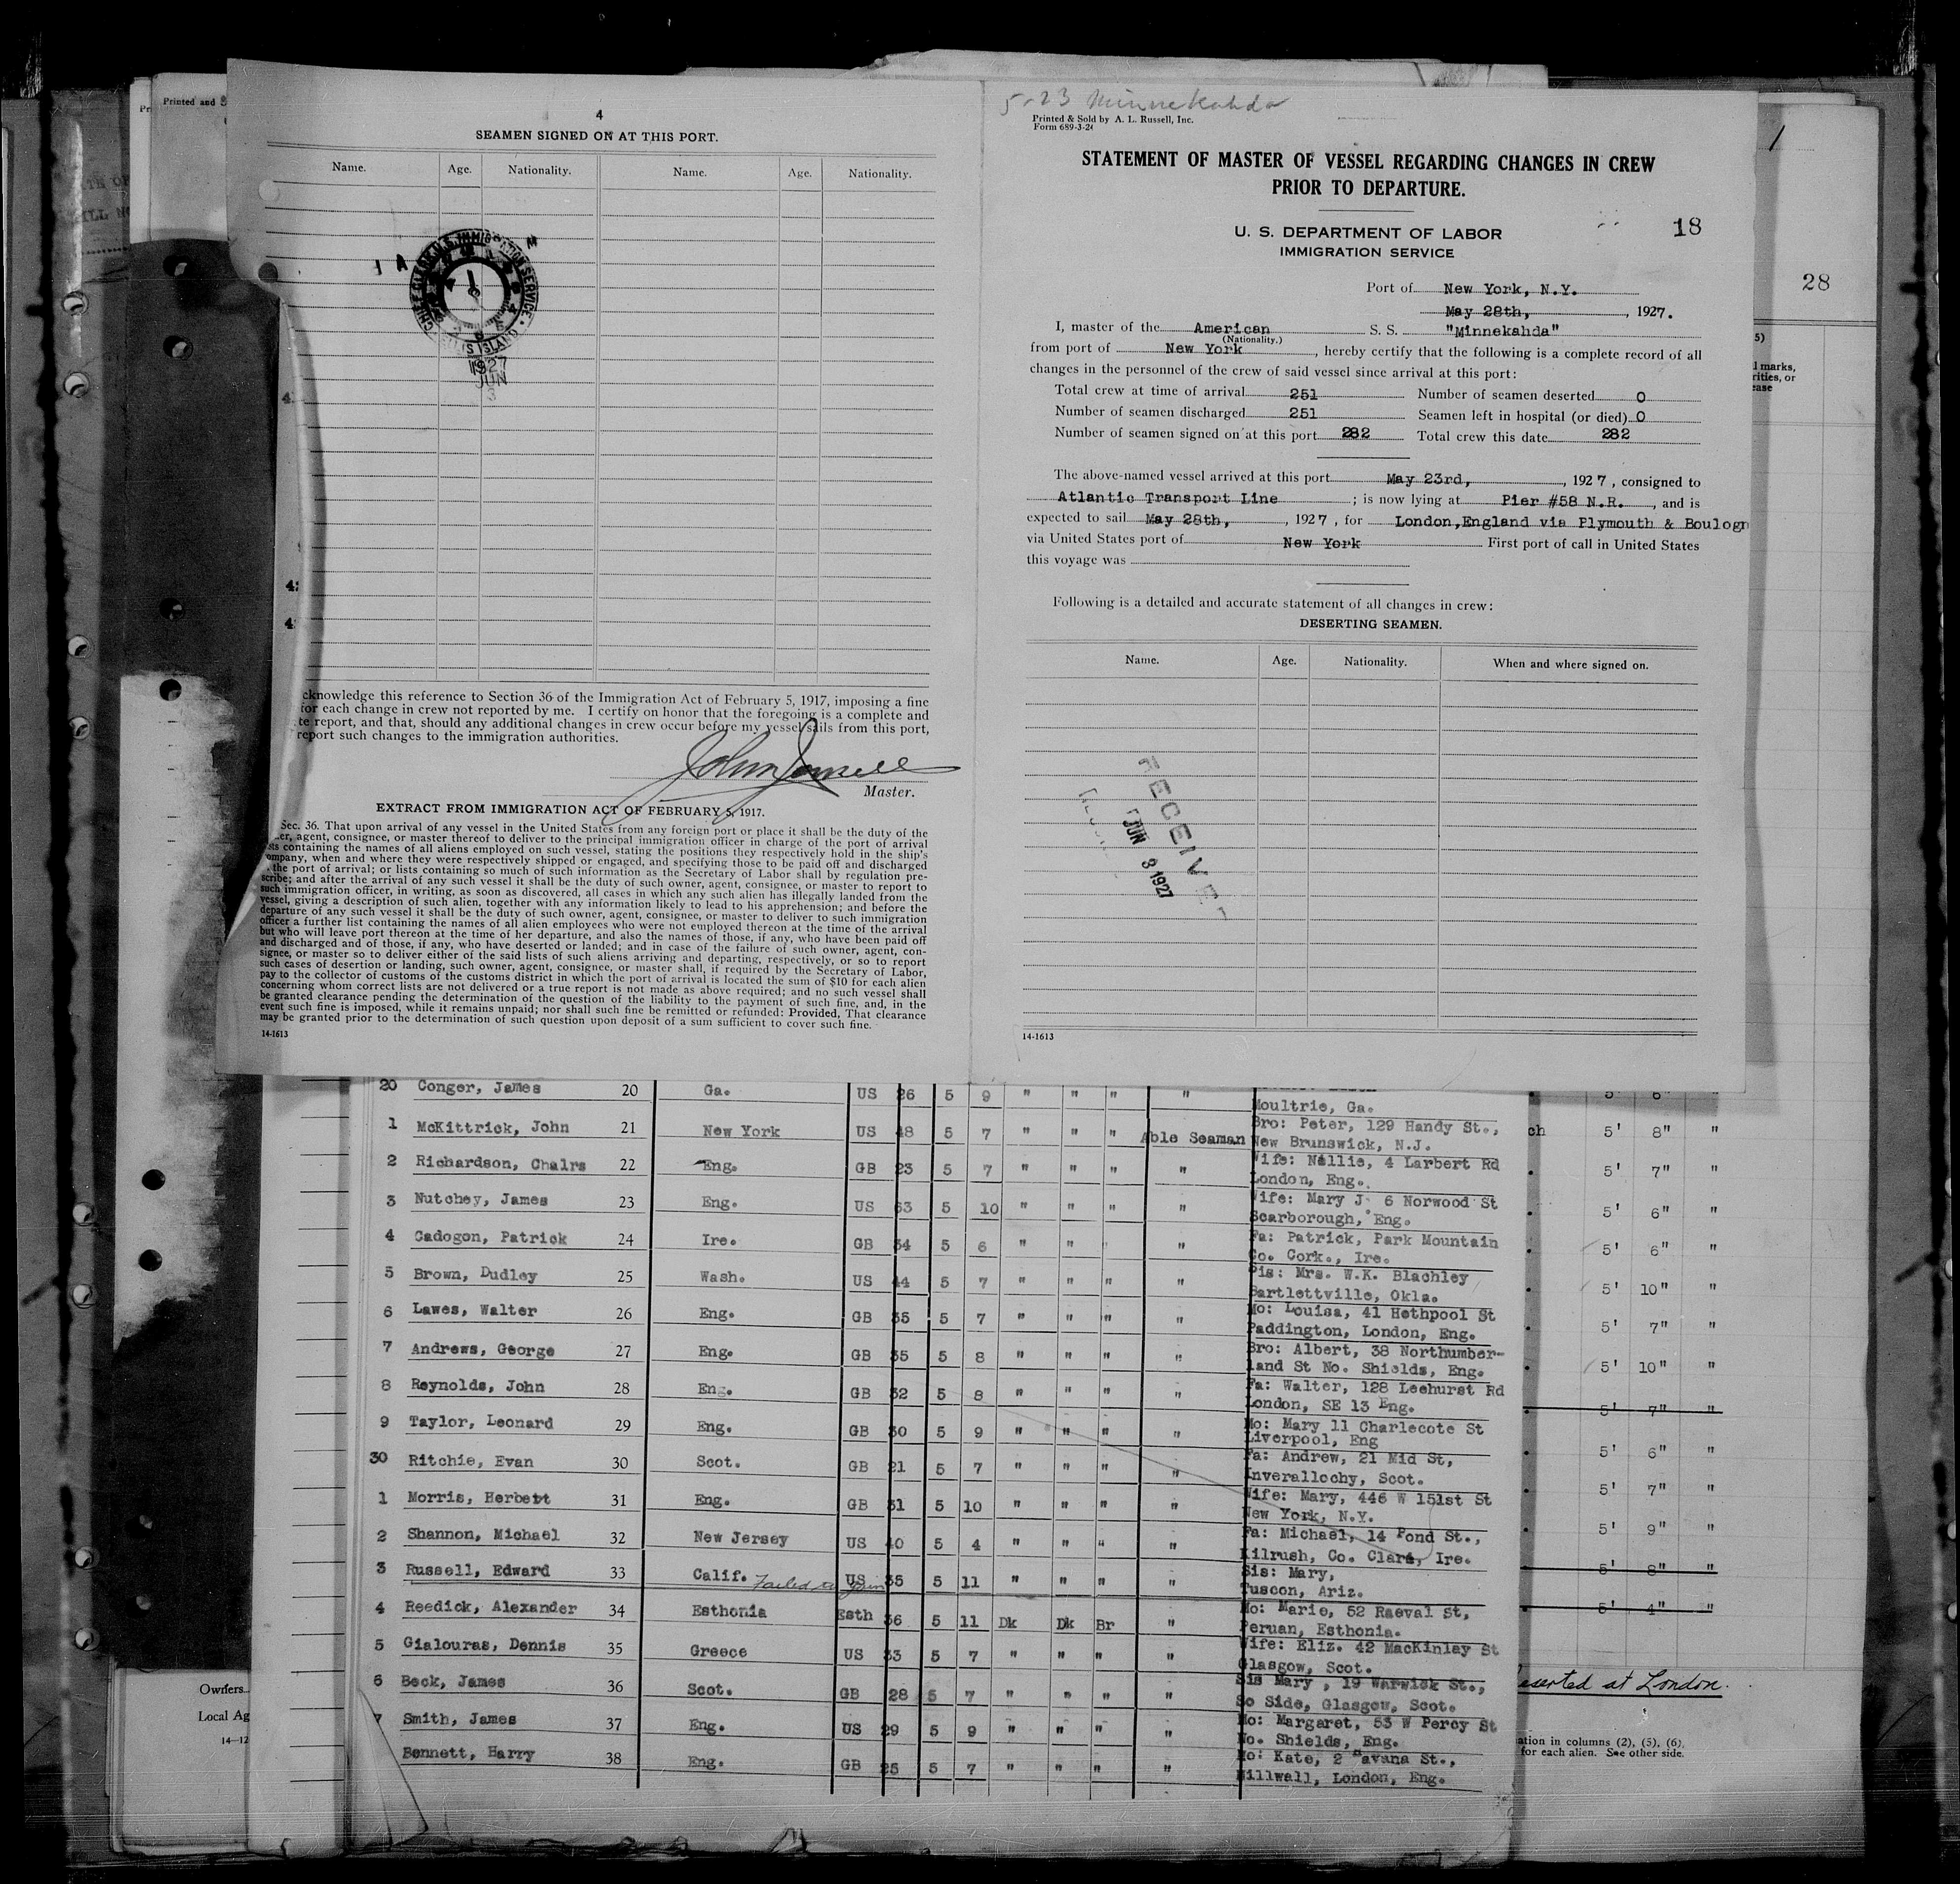 Printed and
4
SEAMEN SIGNED ON AT THIS PORT.
Name. Age. Nationality. Name. Age. Nationality.
CHIEF CLERK U.S. IMMIGRATION SERVICE.
ELLIS ISLAND
1927
JUN
cknowledge this reference to Section 36 of the Immigration Act of February 5, 1917, imposing a fine
for each change in crew not reported by me. I certify on honor that the foregoing is a complete and
te report, and that, should any additional changes in crew occur before my vessel sails from this port,
report such changes to the immigration authorities.
Master.
EXTRACT FROM IMMIGRATION ACT OF FEBRUARY 5, 1917.
Sec. 36. That upon arrival of any vessel in the United States from any foreign port or place it shall be the duty of the
er, agent, consignee, or master thereof to deliver to the principal immigration officer in charge of the port of arrival
sts containing the names of all aliens employed on such vessel, stating the positions they respectively hold in the ship's
ompany, when and where they were respectively shipped or engaged, and specifying those to be paid off and discharged
the port of arrival; or lists containing so much of such information as the Secretary of Labor shall by regulation pre-
scribe; and after the arrival of any such vessel it shall be the duty of such owner, agent, consignee, or master to report to
such immigration officer, in writing, as soon as discovered, all cases in which any such alien has illegally landed from the
vessel, giving a description of such alien, together with any information likely to lead to his apprehension; and before the
departure of any such vessel it shall be the duty of such owner, agent, consignee, or master to deliver to such immigration
officer a further list containing the names of all alien employees who were not employed thereon at the time of the arrival
but who will leave port thereon at the time of her departure, and also the names of those, if any, who have been paid off
and discharged and of those, if any, who have deserted or landed; and in case of the failure of such owner, agent, con-
signee, or master so to deliver either of the said lists of such aliens arriving and departing, respectively, or so to report
such cases of desertion or landing, such owner, agent, consignee, or master shall, if required by the Secretary of Labor,
pay to the collector of customs of the customs district in which the port of arrival is located the sum of $10 for each alien
concerning whom correct lists are not delivered or a true report is not made as above required; and no such vessel shall
be granted clearance pending the determination of the question of the liability to the payment of such fine, and, in the
event such fine is imposed, while it remains unpaid; nor shall such fine be remitted or refunded: Provided, That clearance
may be granted prior to the determination of such question upon deposit of a sum sufficient to cover such fine.
14-1613
5-23 Minnekahda
Printed & Sold by A. L. Russell, Inc.
Form 689-3-26
STATEMENT OF MASTER OF VESSEL REGARDING CHANGES IN CREW
PRIOR TO DEPARTURE.
18
U. S. DEPARTMENT OF LABOR
IMMIGRATION SERVICE
Port of New York, N.Y.
May 28th, , 1927.
I, master of the American S. S. "Minnekahda"
(Nationality.)
from port of New York , hereby certify that the following is a complete record of all
changes in the personnel of the crew of said vessel since arrival at this port:
Total crew at time of arrival 251 Number of seamen deserted 0
Number of seamen discharged 251 Seamen left in hospital (or died) 0
Number of seamen signed on at this port 282 Total crew this date 282
The above-named vessel arrived at this port May 23rd, , 1927, consigned to
Atlantic Transport Line ; is now lying at Pier #58 N.R. , and is
expected to sail May 28th, , 1927, for London,England via Plymouth & Boulogn
via United States port of New York First port of call in United States
this voyage was
Following is a detailed and accurate statement of all changes in crew:
DESERTING SEAMEN.
Name. Age. Nationality. When and where signed on.
RECEIVE
JUN 3 1927
14-1613
28
5)
l marks,
rities, or
ease
20 Conger, James 20 Ga. US 26 5 9 " " " "
Moultrie, Ga.
1 McKittrick, John 21 New York US 48 5 7 " " " Able Seaman Bro: Peter, 129 Handy St.,
New Brunswick, N.J.
ch 5' 8" "
2 Richardson, Chalrs 22 Eng. GB 23 5 7 " " " " Wife: Nellie, 4 Larbert Rd
London, Eng.
5' 7" "
3 Nutchey, James 23 Eng. US 63 5 10 " " " " Wife: Mary J. 6 Norwood St
Scarborough, Eng.
5' 6" "
4 Cadogon, Patrick 24 Ire. GB 34 5 6 " " " " Fa: Patrick, Park Mountain
Co. Cork., Ire.
5' 6" "
5 Brown, Dudley 25 Wash. US 44 5 7 " " " " Sis: Mrs. W.K. Blachley
Bartlettville, Okla.
5' 10" "
6 Lawes, Walter 26 Eng. GB 35 5 7 " " " " Mo: Louisa, 41 Hethpool St
Paddington, London, Eng.
5' 7" "
7 Andrews, George 27 Eng. GB 35 5 8 " " " " Bro: Albert, 38 Northumber-
land St No. Shields, Eng.
5' 10" "
8 Reynolds, John 28 Eng. GB 32 5 8 " " " " Fa: Walter, 128 Leehurst Rd
London, SE 13 Eng.
5' 7" "
9 Taylor, Leonard 29 Eng. GB 30 5 9 " " " " Mo: Mary 11 Charlecote St
Liverpool, Eng
5' 6" "
30 Ritchie, Evan 30 Scot. GB 21 5 7 " " " " Fa: Andrew, 21 Mid St,
Inverallochy, Scot.
5' 7" "
1 Morris, Herbett 31 Eng. GB 31 5 10 " " " " Wife: Mary, 446 W 151st St
New York, N.Y.
5' 9" "
2 Shannon, Michael 32 New Jersey US 40 5 4 " " " " Fa: Michael, 14 Pond St.,
Kilrush, Co. Clare, Ire.
5' 8" "
3 Russell, Edward 33 Calif. Failed to join US 35 5 11 " " " " Sis: Mary,
Tuscon, Ariz.
5' 4" "
4 Reedick, Alexander 34 Esthonia Esth 36 5 11 Dk Dk Br " Mo: Marie, 52 Raeval St,
Peruan, Esthonia.
5 Gialouras, Dennis 35 Greece US 33 5 7 " " " " Wife: Eliz. 42 MacKinley St
Glasgow, Scot.
6 Beck, James 36 Scot. GB 28 5 7 " " " " Sis Mary , 19 Warwick St.,
So Side, Glasgow, Scot.
eserted at London.
7 Smith, James 37 Eng. US 29 5 9 " " " " Mo: Margaret, 53 W Percy St
No. Shields, Eng.
Bennett, Harry 38 Eng. GB 25 5 7 " " " " Mo: Kate, 2 Havana St.,
Millwall, London, Eng.
ation in columns (2), (5), (6),
for each alien. See other side.
Owners
Local Ag
14-12